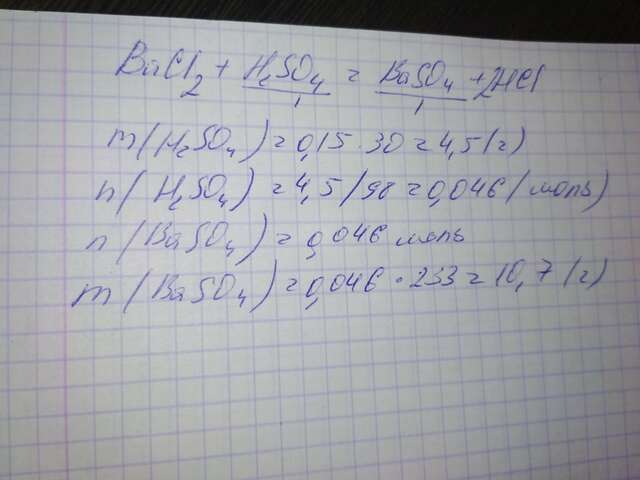 BaCl₂ + H₂SO₄ = BaSO₄ + 2HCl
1 1
m(H₂SO₄) = 0,15 · 30 = 4,5 (г)
n(H₂SO₄) = 4,5/98 = 0,046 (моль)
n(BaSO₄) = 0,046 моль
m(BaSO₄) = 0,046 · 233 = 10,7 (г)